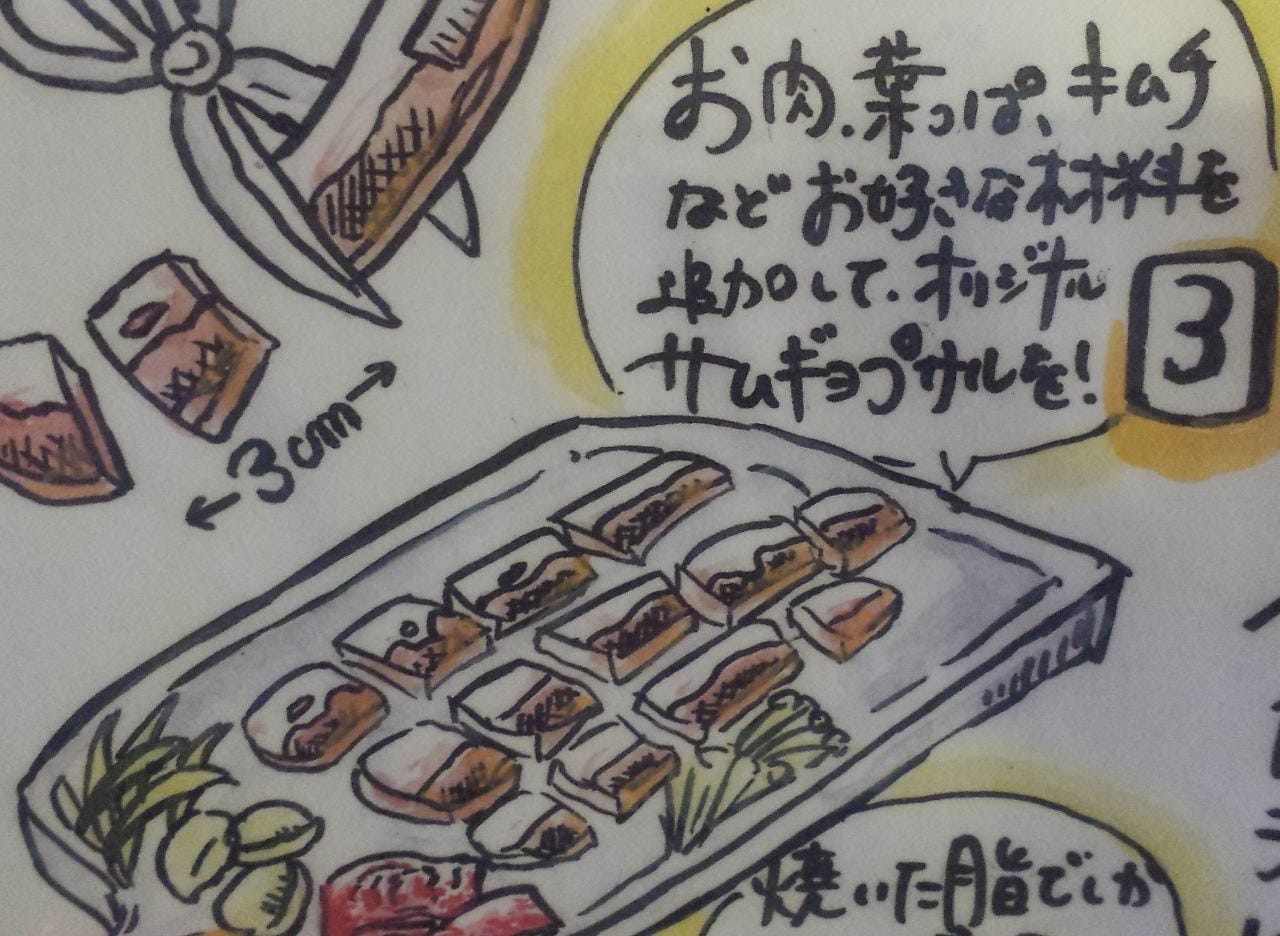 お肉、葉っぱ、キムチ
などお好きな材料を
追加して、オリジナル
サムギョプサルを!
3
←3cm→
焼いた脂でしか